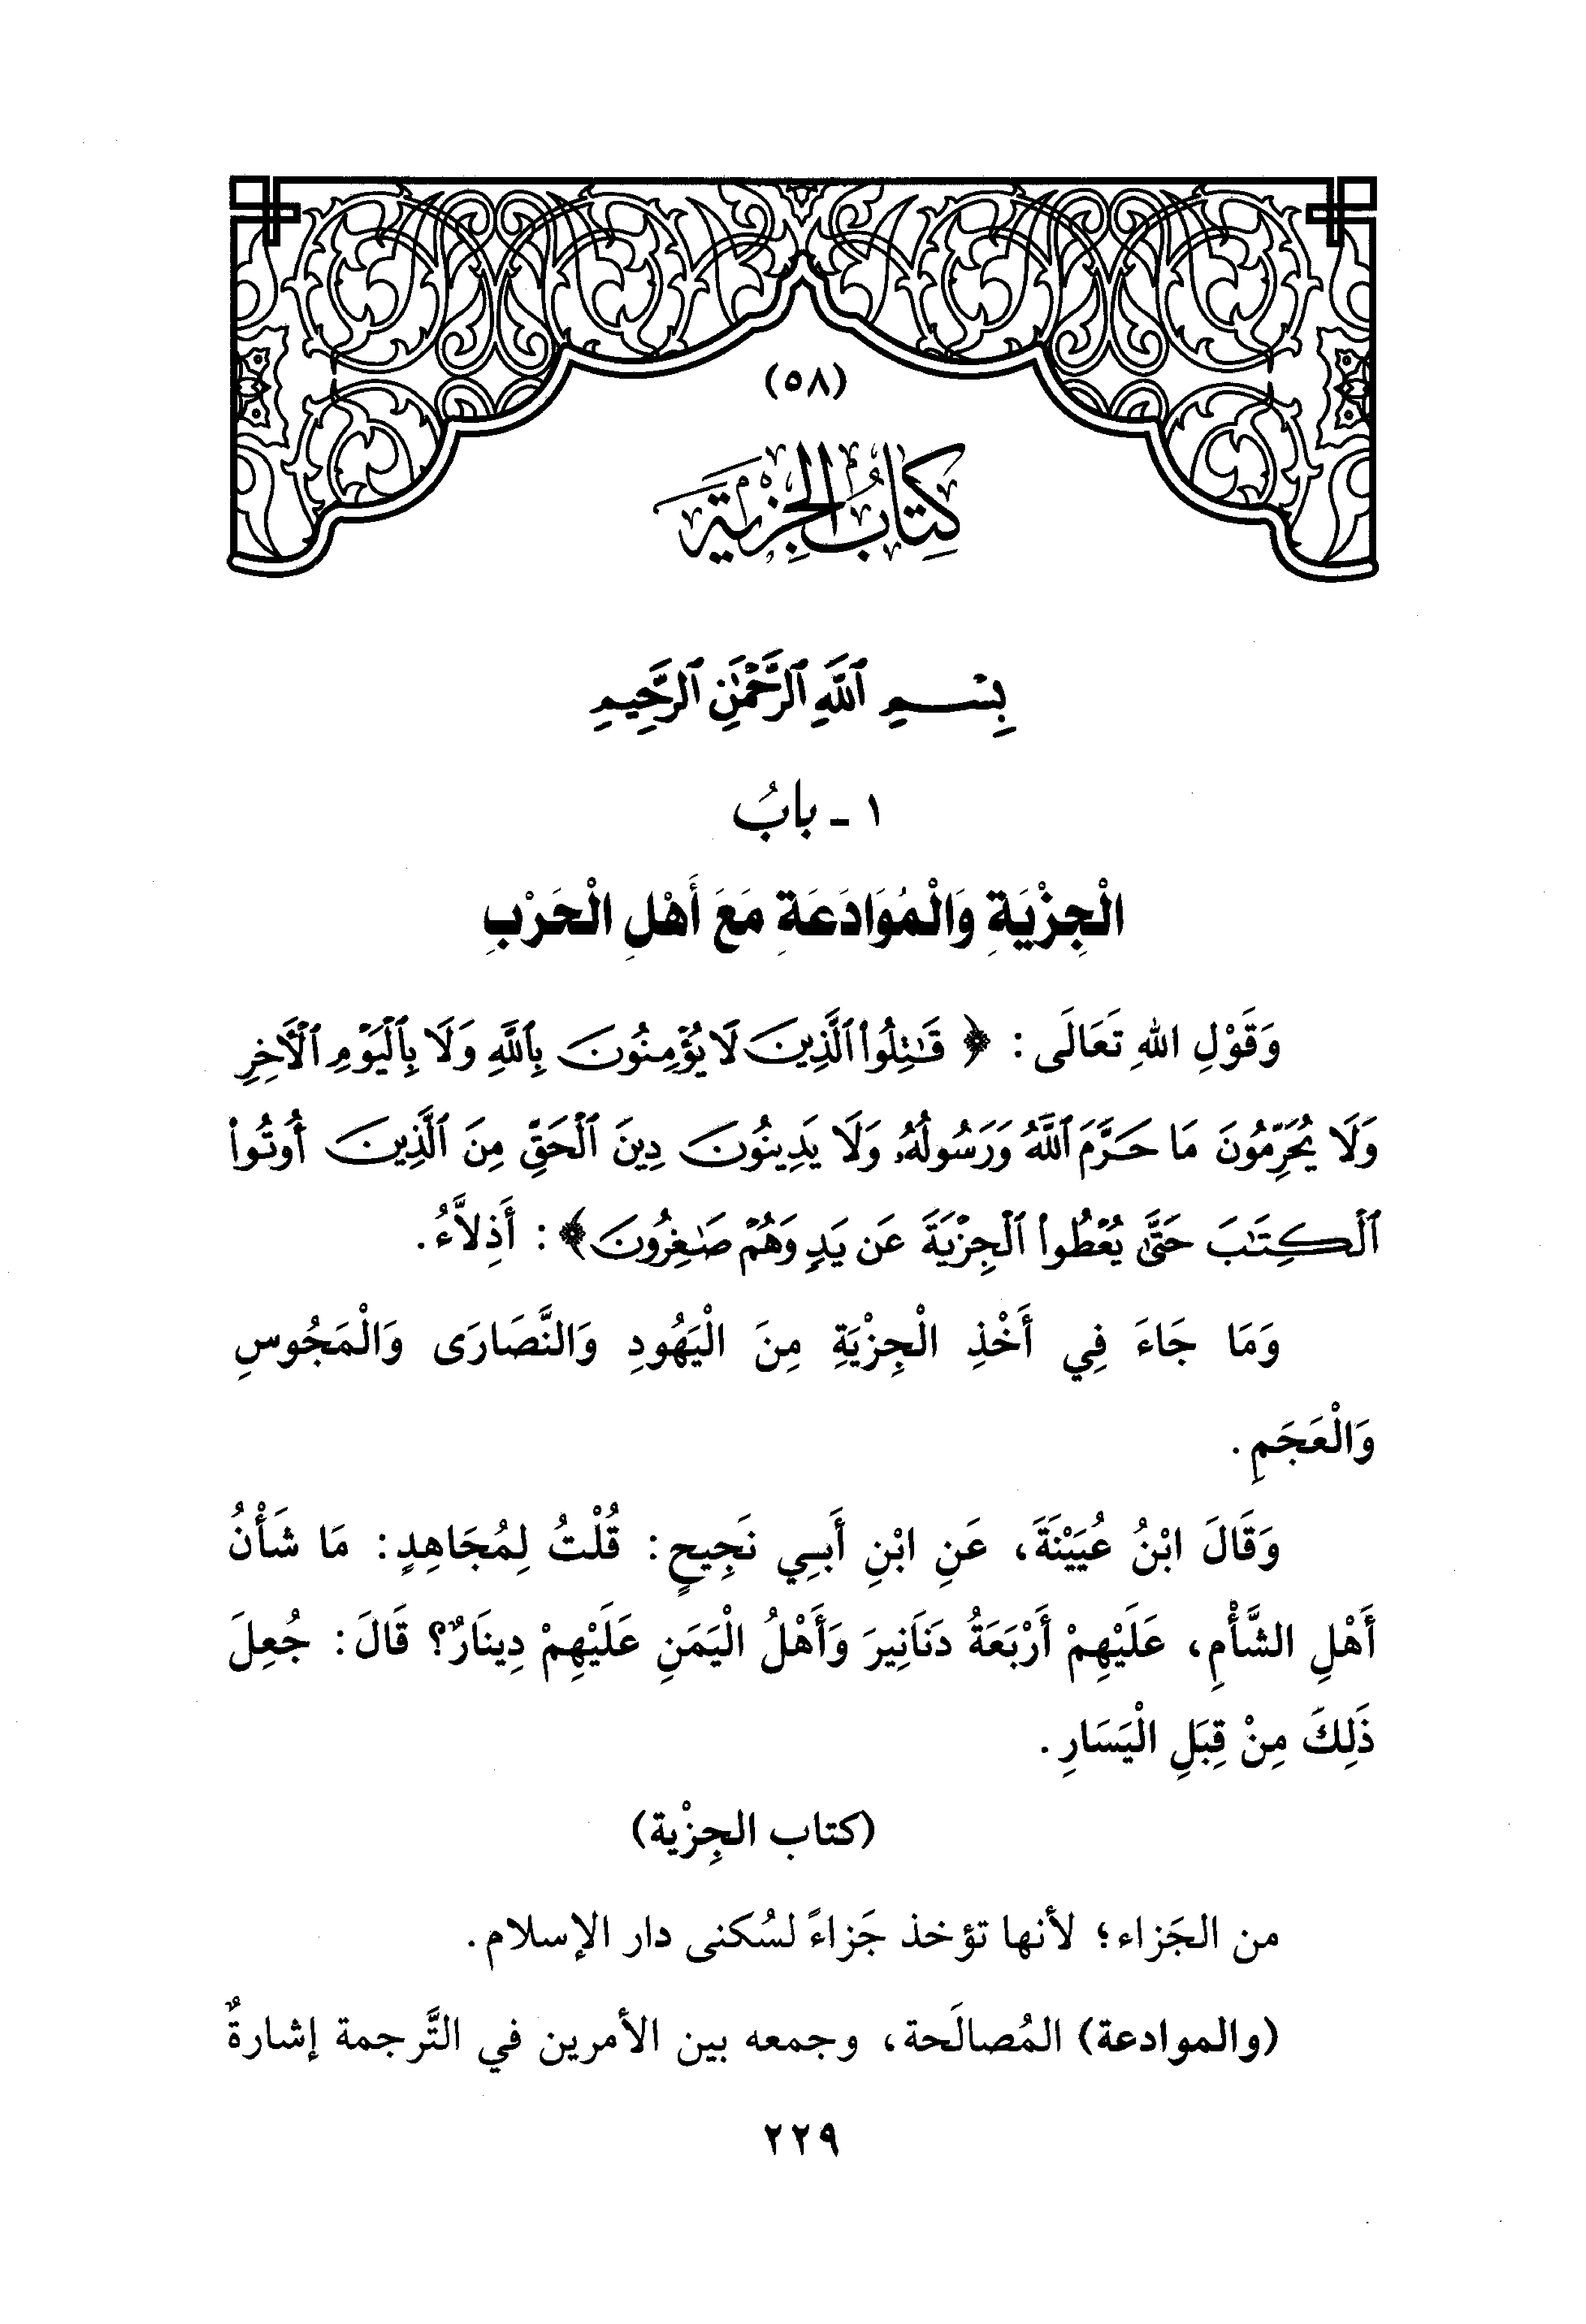 (٥٨)
كِتَابُ الجِزْيَة
بِسْمِ ٱللَّهِ ٱلرَّحْمَٰنِ ٱلرَّحِيمِ
١ - بابُ
الْجِزْيَةِ وَالْمُوَادَعَةِ مَعَ أَهْلِ الْحَرْبِ
وَقَوْلِ اللهِ تَعَالَى: ﴿ قَٰتِلُوا۟ ٱلَّذِينَ لَا يُؤْمِنُونَ بِٱللَّهِ وَلَا بِٱلْيَوْمِ ٱلْءَاخِرِ
وَلَا يُحَرِّمُونَ مَا حَرَّمَ ٱللَّهُ وَرَسُولُهُۥ وَلَا يَدِينُونَ دِينَ ٱلْحَقِّ مِنَ ٱلَّذِينَ أُوتُوا۟
ٱلْكِتَٰبَ حَتَّىٰ يُعْطُوا۟ ٱلْجِزْيَةَ عَن يَدٍ وَهُمْ صَٰغِرُونَ ﴾: أَذِلاَّءُ.
وَمَا جَاءَ فِي أَخْذِ الْجِزْيَةِ مِنَ الْيَهُودِ وَالنَّصَارَى وَالْمَجُوسِ
وَالْعَجَمِ.
وَقَالَ ابْنُ عُيَيْنَةَ، عَنِ ابْنِ أَبِي نَجِيحٍ: قُلْتُ لِمُجَاهِدٍ: مَا شَأْنُ
أَهْلِ الشَّأْمِ، عَلَيْهِمْ أَرْبَعَةُ دَنَانِيرَ وَأَهْلُ الْيَمَنِ عَلَيْهِمْ دِينَارٌ؟ قَالَ: جُعِلَ
ذَلِكَ مِنْ قِبَلِ الْيَسَارِ.
(كتاب الجِزْية)
من الجَزاء؛ لأنها تؤخذ جَزاءً لسُكنى دار الإسلام.
(والموادعة) المُصالَحة، وجمعه بين الأمرين في التَّرجمة إشارةٌ
٢٢٩